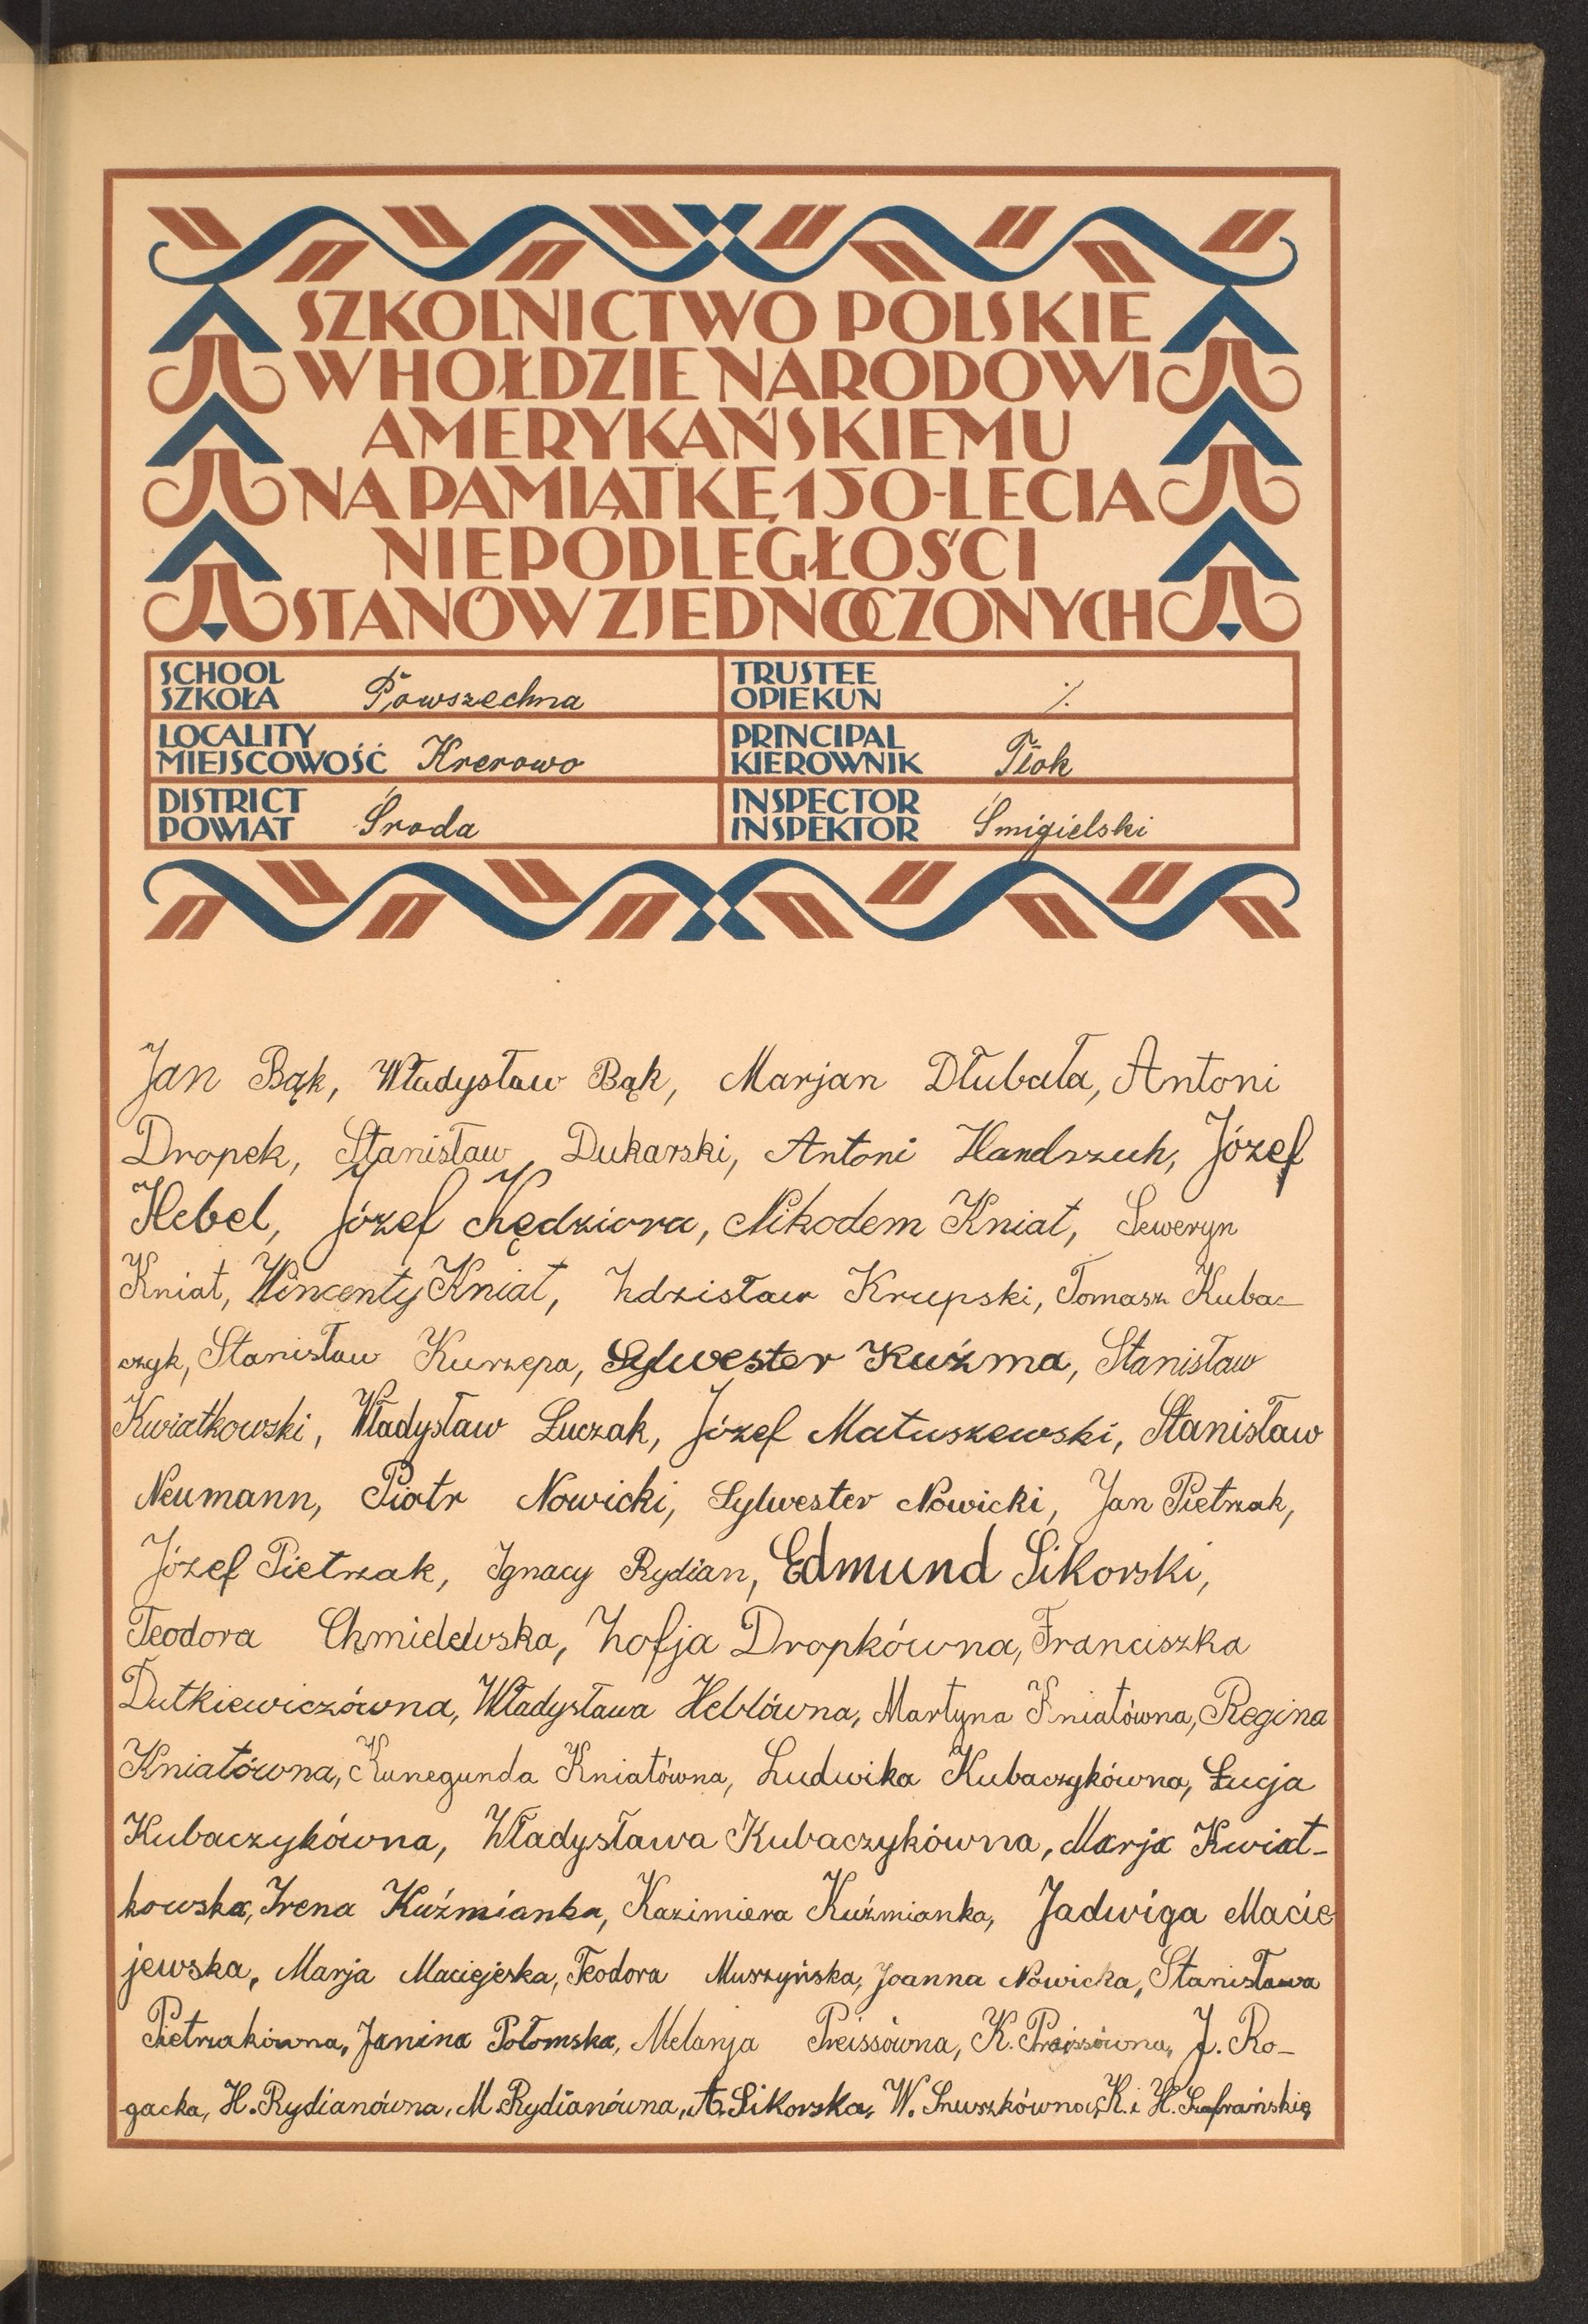 SZKOLNICTWO POLSKIE
W HOŁDZIE NARODOWI
AMERYKAŃSKIEMU
NA PAMIĄTKĘ 150-LECIA
NIEPODLEGŁOŚCI
STANÓW ZJEDNOCZONYCH
SCHOOL
SZKOŁA Powszechna
TRUSTEE
OPIEKUN ٪.
LOCALITY
MIEJSCOWOŚĆ Krerowo
PRINCIPAL
KIEROWNIK Tłok
DISTRICT
POWIAT Środa
INSPECTOR
INSPEKTOR Śmigielski
Jan Bąk, Władysław Bąk, Marjan Dłubała, Antoni
Dropek, Stanisław Dukarski, Antoni Handrzuh, Józef
Hebel, Józef Kędziora, Nikodem Kniat, Seweryn
Kniat, Wincenty Kniat, Zdzisław Krupski, Tomasz Kuba-
czyk, Stanisław Kurzepa, Sylwester Kuźma, Stanisław
Kwiatkowski, Władysław Łuczak, Józef Matuszewski, Stanisław
Neumann, Piotr Nowicki, Sylwester Nowicki, Jan Pietrzak,
Józef Pietrzak, Ignacy Rydian, Edmund Sikorski,
Teodora Chmielewska, Zofja Dropkówna, Franciszka
Dutkiewiczówna, Władysława Heblówna, Martyna Kniatówna, Regina
Kniatówna, Kunegunda Kniatówna, Ludwika Kubaczykówna, Łucja
Kubaczykówna, Władysława Kubaczykówna, Marja Kwiat-
kowska, Irena Kuźmianka, Kazimiera Kuźmianka, Jadwiga Macie
jewska, Marja Maciejeska, Teodora Muszyńska, Joanna Nowicka, Stanisława
Pietrzakówna, Janina Połomska, Melanja Preissówna, K. Preissówna, J. Ro-
gacka, H. Rydianówna, M. Rydianówna, A. Sikorska, W. K. i H. Szafrańskie